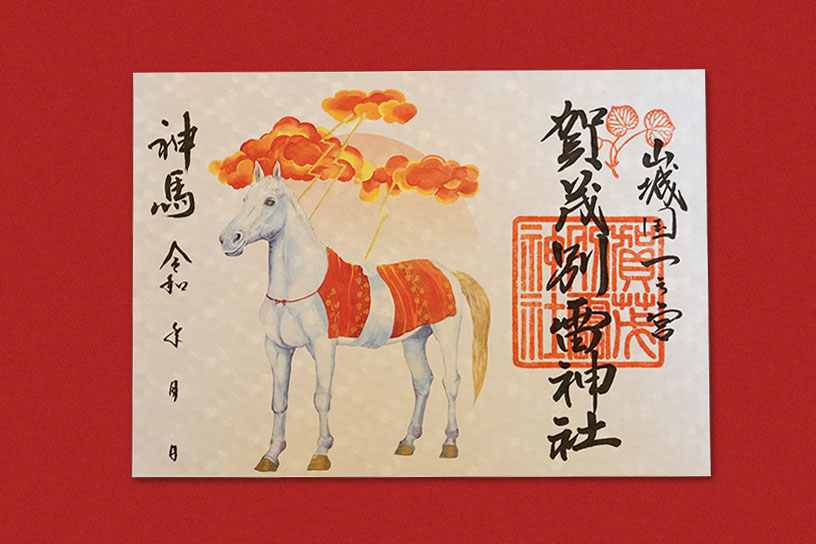 山城国一之宮
賀茂別雷神社
賀茂
別雷
神社
神馬
令和 年 月 日